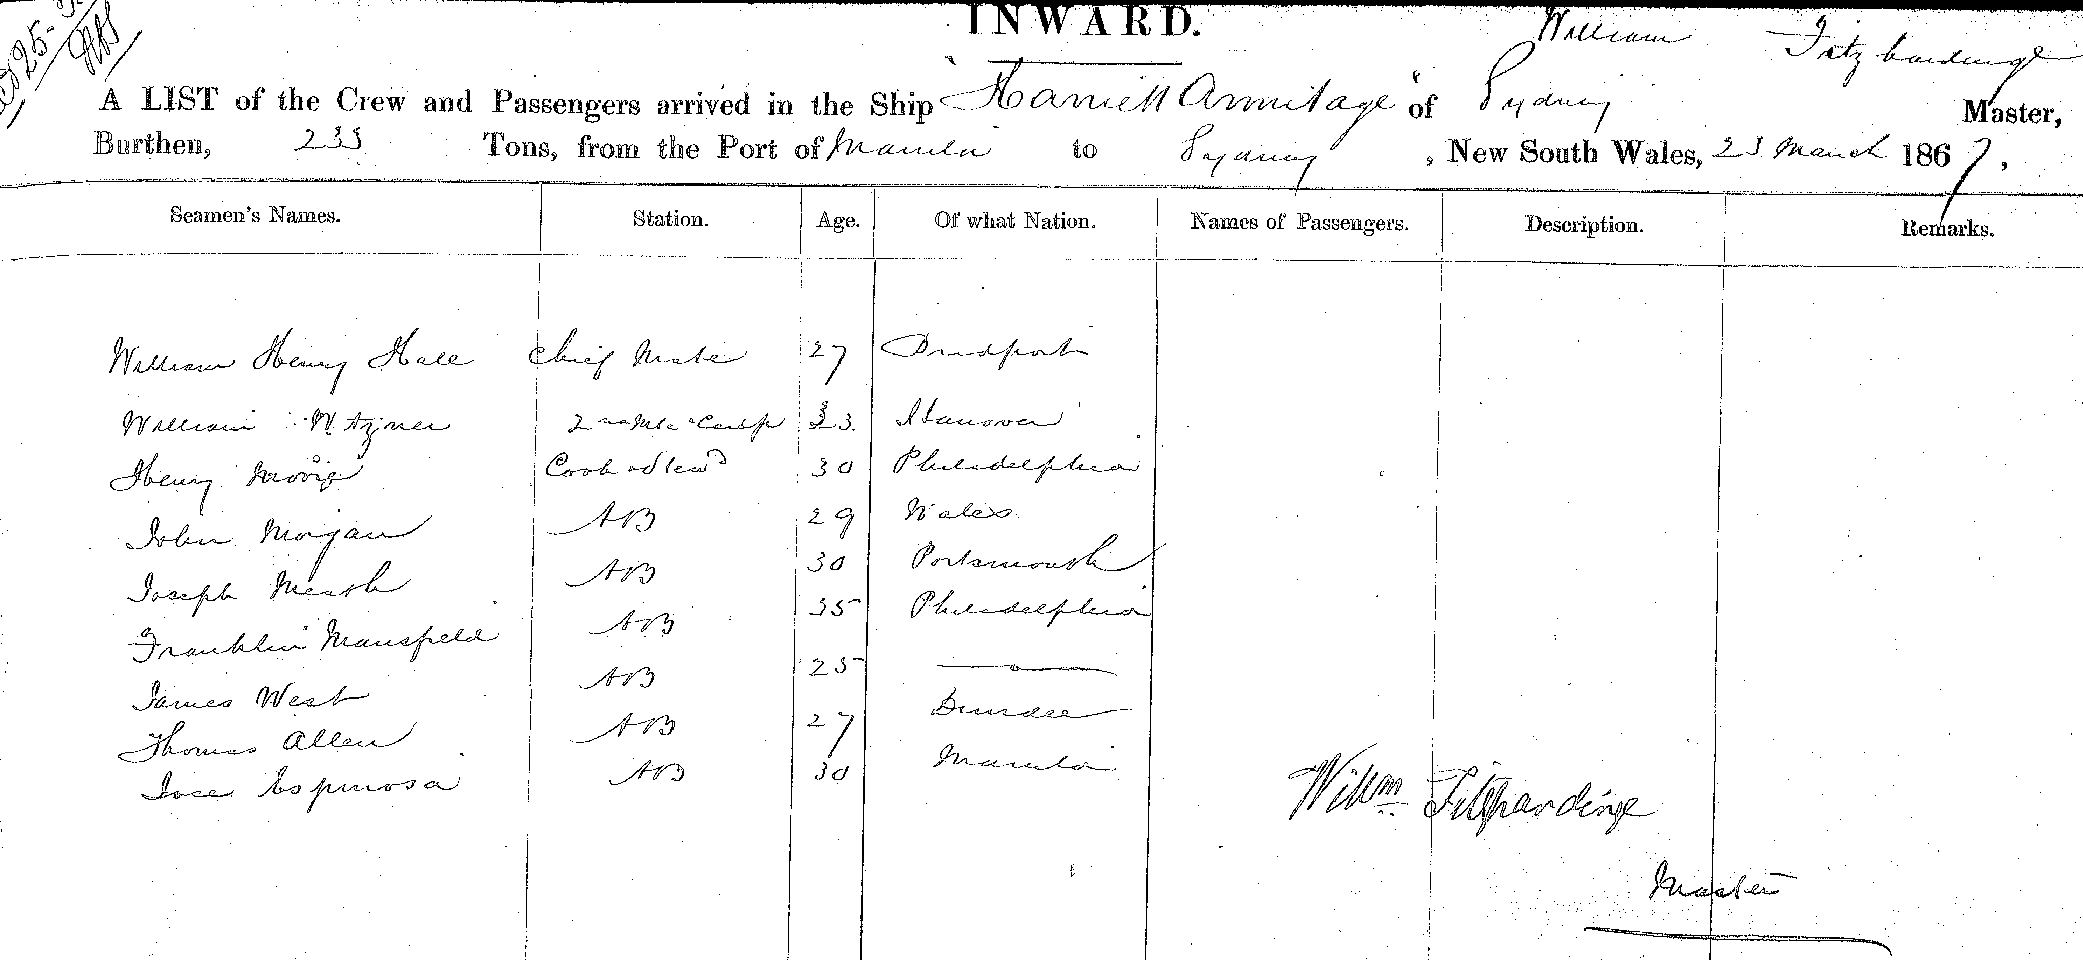 INWARD.
William Fitzhardinge
A LIST of the Crew and Passengers arrived in the Ship Harriett Armitage of Sydney Master,
Burthen, 233 Tons, from the Port of Manila to Sydney, New South Wales, 23 March 1867,
Seamen's Names. Station. Age. Of what Nation. Names of Passengers. Description. Remarks.
William Henry Hall Chief Mate 27
William 33 Hanover
Henry 30 Philadelphia
John Morgan AB 29 Wales
Joseph AB 30 Portsmouth
Franklin Mansfield AB 35 Philadelphia
James West AB 25 —o—
Thomas Allen AB 27 Dundee
Jose Espinosa AB 30 Manila
Willm Fitzhardinge
Master